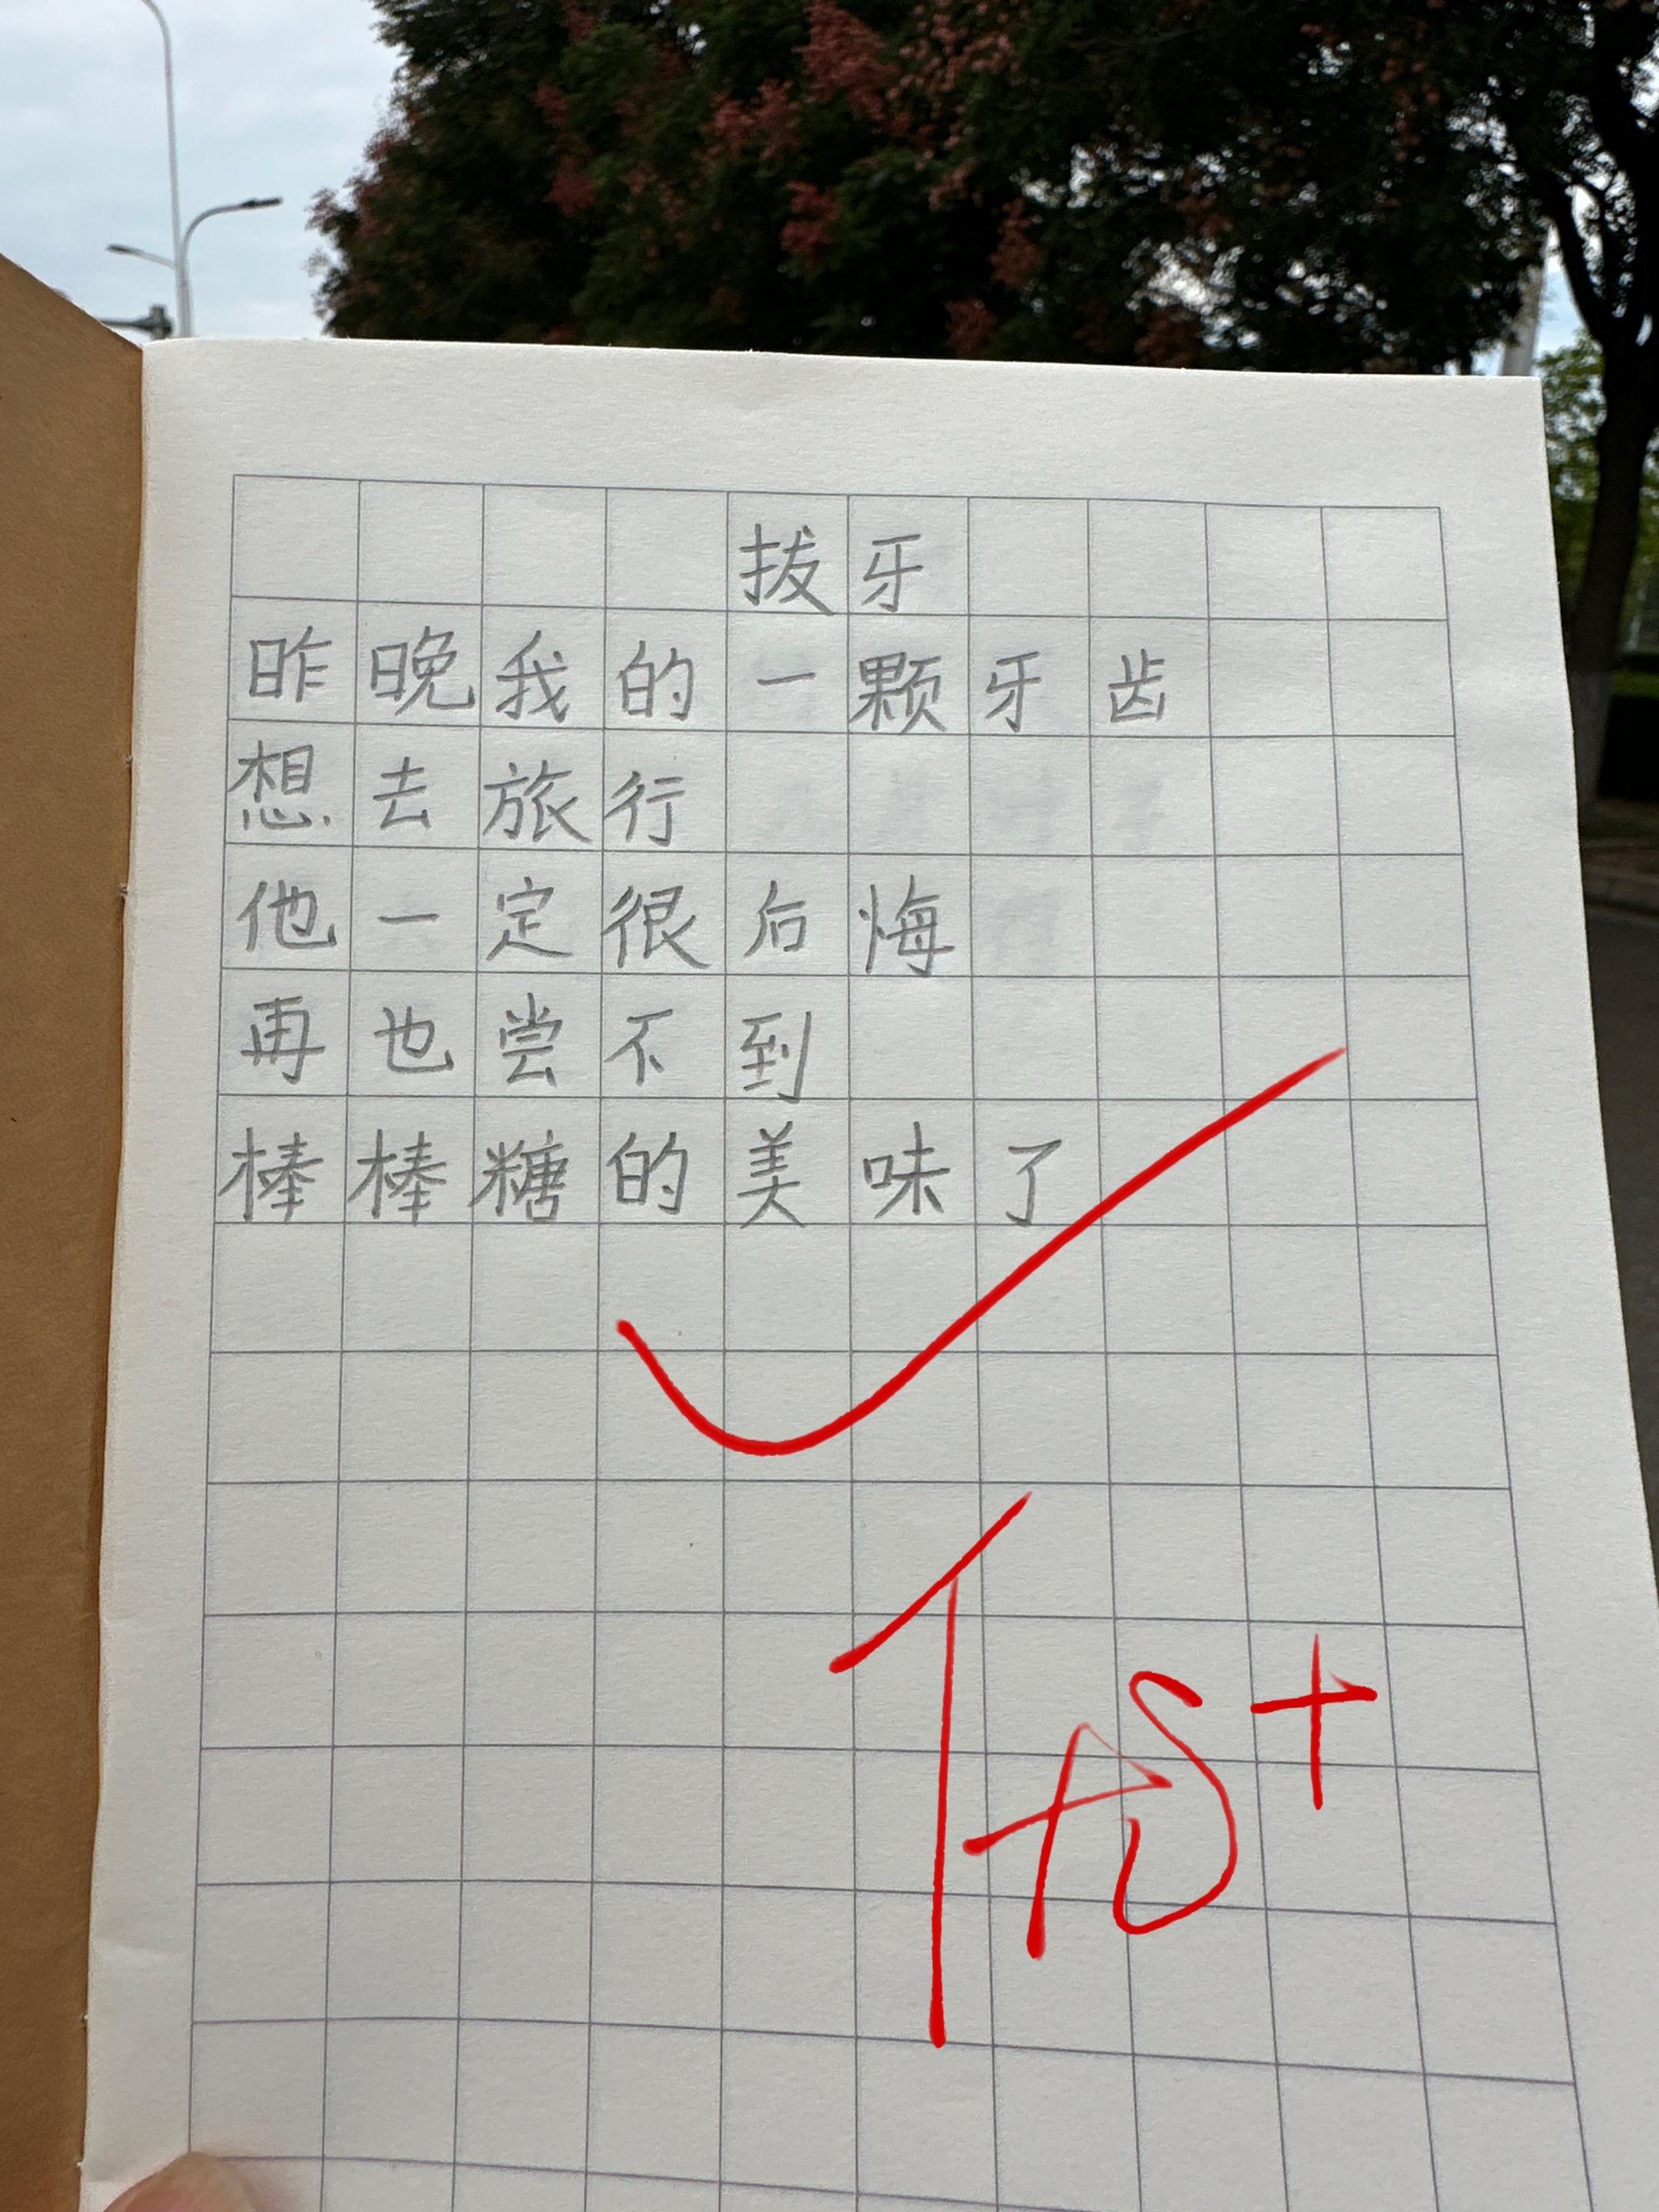 拔牙
昨晚我的一颗牙齿
想去旅行
他一定很后悔
再也尝不到
棒棒糖的美味了